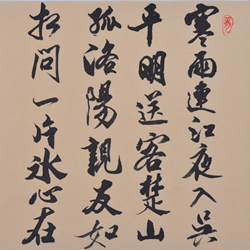 寒雨連江夜入吳
平明送客楚山
孤洛陽親友如
相問一片冰心在